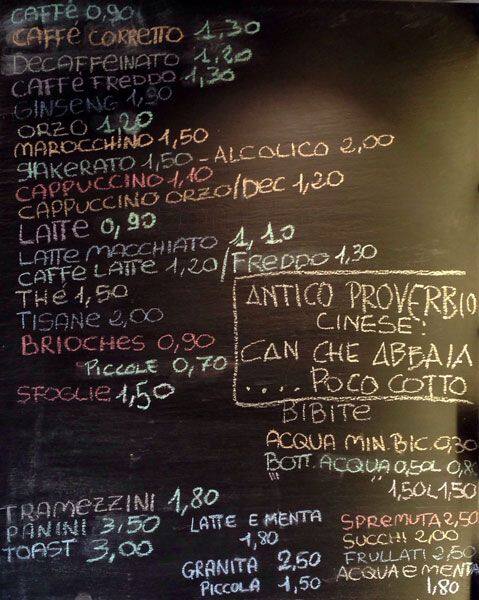 CAFFÉ 0,90
CAFFÈ CORRETTO 1,30
DECAFFEINATO 1,20
CAFFÈ FREDDO 1,30
GINSENG 1,30
ORZO 1,20
MAROCCHINO 1,50
SHAKERATO 1,50 - ALCOLICO 2,00
CAPPUCCINO 1,10
CAPPUCCINO ORZO/DEC 1,20
LATTE 0,90
LATTE MACCHIATO 1,10
CAFFÈ LATTE 1,20/FREDDO 1,30
THÉ 1,50
TISANE 2,00
BRIOCHES 0,90
PICCOLE 0,70
SFOGLIE 1,50
ANTICO PROVERBIO
CINESE:
CAN CHE ABBAIA
.... POCO COTTO
BIBITE
ACQUA MIN. BIC. 0,30
BOTT. ACQUA 0,50L 0,80
1,50L 1,50
TRAMEZZINI 1,80
PANINI 3,50
TOAST 3,00
LATTE E MENTA
1,80
GRANITA 2,50
PICCOLA 1,50
SPREMUTA 2,50
SUCCHI 2,00
FRULLATI 2,50
ACQUA E MENTA
1,80